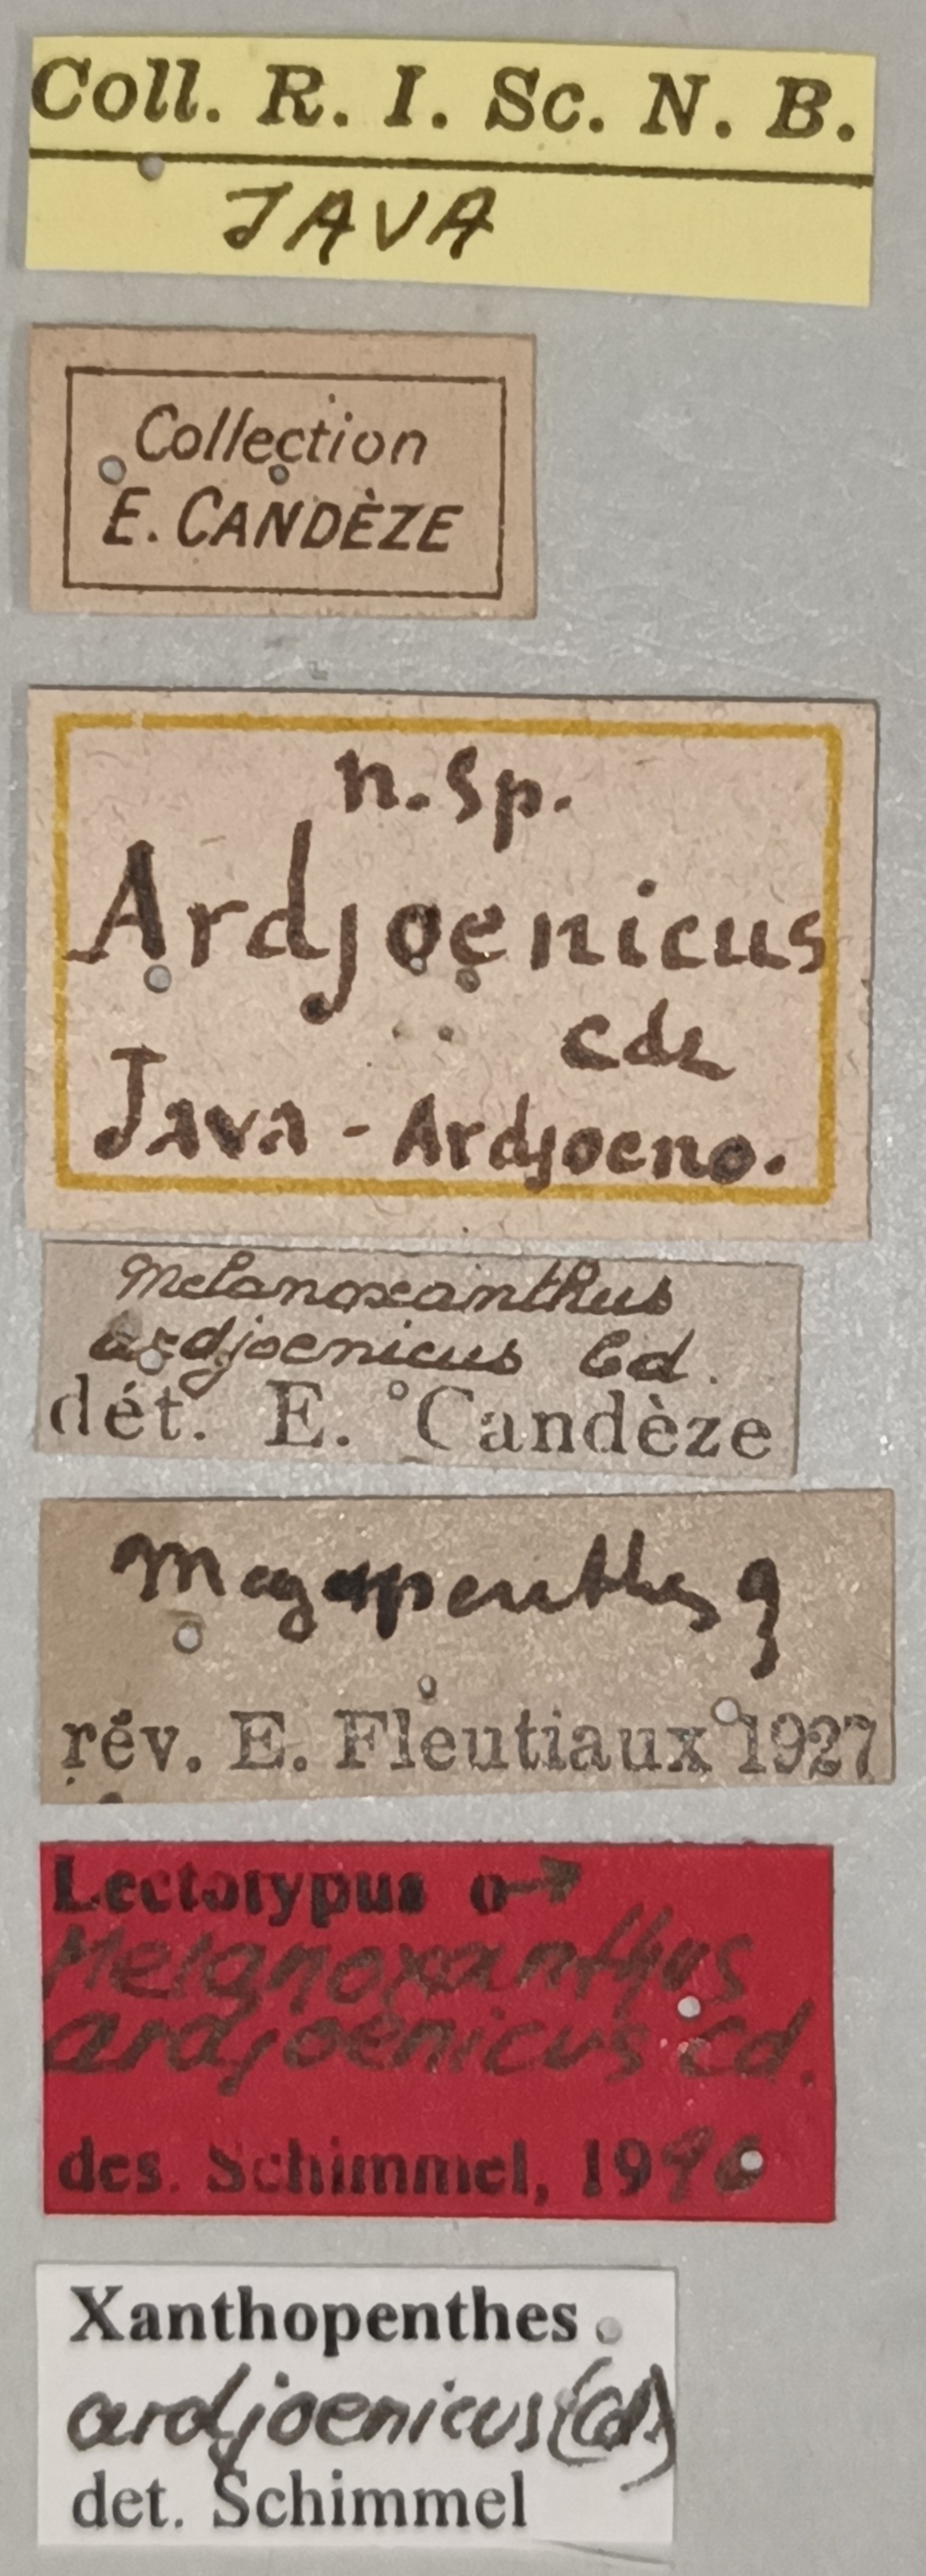 Coll. R. I. Sc. N. B.
JAVA
Collection
E. CANDÈZE
n. sp.
Ardjoenicus
cdz
Java - Ardjoeno.
Melanoxanthus
ardjoenicus Cd.
dét. E. Candèze
Megapenthes
rév. E. Fleutiaux 1927
Lectotypus
Melanoxanthus
ardjoenicus Cd.
des. Schimmel, 1996
Xanthopenthes
ardjoenicus (Cd.)
det. Schimmel